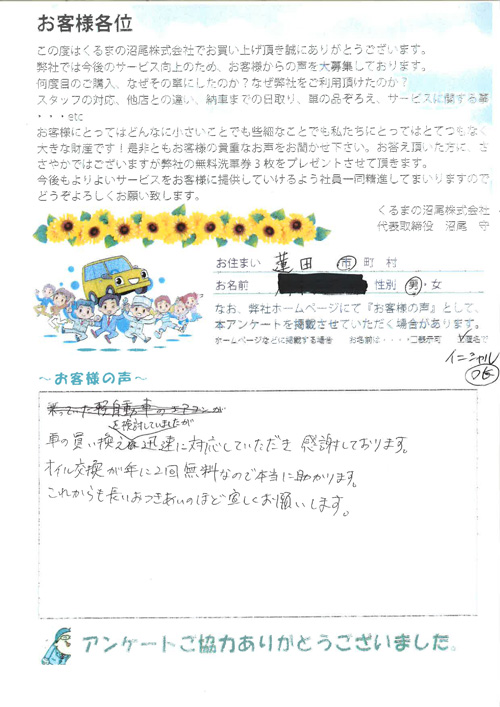 お客様各位
この度はくるまの沼尾株式会社でお買い上げ頂き誠にありがとうございます。
弊社では今後のサービス向上のため、お客様からの声を大募集しております。
何度目のご購入、なぜその車にしたのか？なぜ弊社をご利用頂けたのか？
スタッフの対応、他店との違い、納車までの日取り、車の品ぞろえ、サービスに関する事
・・・etc
お客様にとってはどんなに小さいことでも些細なことでも私たちにとってはとてつもなく
大きな財産です！是非ともお客様の貴重なお声をお聞かせ下さい。お答え頂いた方に、さ
さやかではございますが弊社の無料洗車券３枚をプレゼントさせて頂きます。
今後もよりよいサービスをお客様に提供していけるよう社員一同精進してまいりますので
どうぞよろしくお願い致します。
くるまの沼尾株式会社
代表取締役 沼尾 守
お住まい 蓮田 市 町 村
お名前 性別 男・女
なお、弊社ホームページにて『お客様の声』として、
本アンケートを掲載させていただく場合があります。
ホームページなどに掲載する場合 お名前は・・・・□掲示可 ☑匿名で
イニシャル
OK
～お客様の声～
乗っていた軽自動車のエアコンが
を検討していましたが
車の買い換え迅速に対応していただき 感謝しております。
オイル交換が年に2回無料なので本当に助かります。
これからも長いおつきあいのほど宜しくお願いします。
アンケートご協力ありがとうございました。